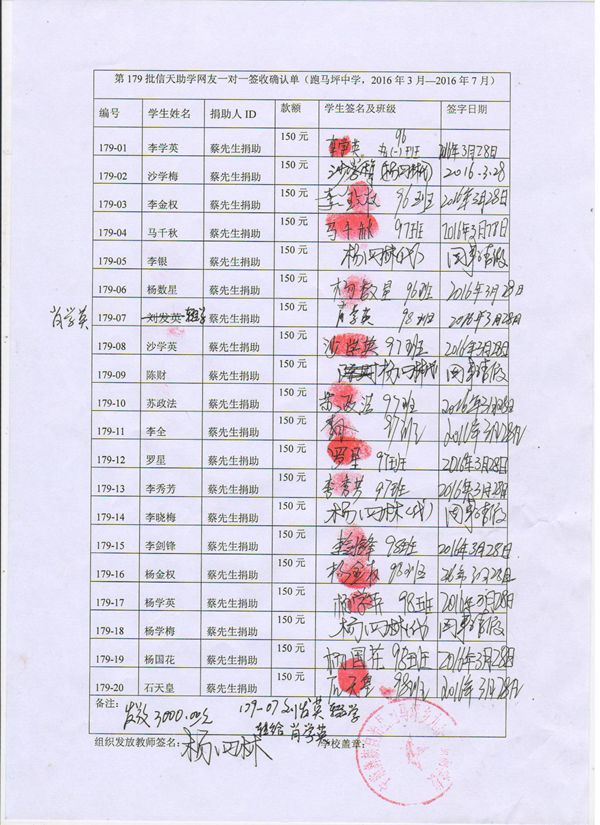 第179批信天助学网友一对一签收确认单（跑马坪中学，2016年3月—2016年7月）
编号 学生姓名 捐助人ID 款额 学生签名及班级 签字日期
179-01 李学英 蔡先生捐助 150元 李学英 96 2016年3月28日
179-02 沙学梅 蔡先生捐助 150元 沙学梅(杨四林代) 2016.3.28
179-03 李金权 蔡先生捐助 150元 李金权 96班 2016年3月28日
179-04 马千秋 蔡先生捐助 150元 马千秋 97班 2016年3月28日
179-05 李银 蔡先生捐助 150元 杨四林(代) 因事请假
179-06 杨数星 蔡先生捐助 150元 杨数星 96班 2016年3月28日
肖学英 179-07 刘发英 辍学 蔡先生捐助 150元 肖学英 98班 2016年3月28日
179-08 沙学英 蔡先生捐助 150元 沙学英 97班 2016年3月28日
179-09 陈财 蔡先生捐助 150元 杨四林代 因事请假
179-10 苏政法 蔡先生捐助 150元 苏政法 97班 2016年3月28日
179-11 李全 蔡先生捐助 150元 97班 2016年3月28日
179-12 罗星 蔡先生捐助 150元 罗星 97班 2016年3月28日
179-13 李秀芳 蔡先生捐助 150元 李秀芳 97班 2016年3月28日
179-14 李晓梅 蔡先生捐助 150元 杨四林(代) 因事请假
179-15 李剑锋 蔡先生捐助 150元 李剑锋 98班 2016年3月28日
179-16 杨金权 蔡先生捐助 150元 杨金权 98班 2016年3月28日
179-17 杨学英 蔡先生捐助 150元 杨学英 98班 2016年3月28日
179-18 杨学梅 蔡先生捐助 150元 杨四林(代) 因事请假
179-19 杨国花 蔡先生捐助 150元 杨国花 98班 2016年3月28日
179-20 石天皇 蔡先生捐助 150元 石天皇 98班 2016年3月28日
备注： 发放3000.00元 179-07刘发英辍学
转给肖学英
组织发放教师签名： 杨四林 学校盖章：